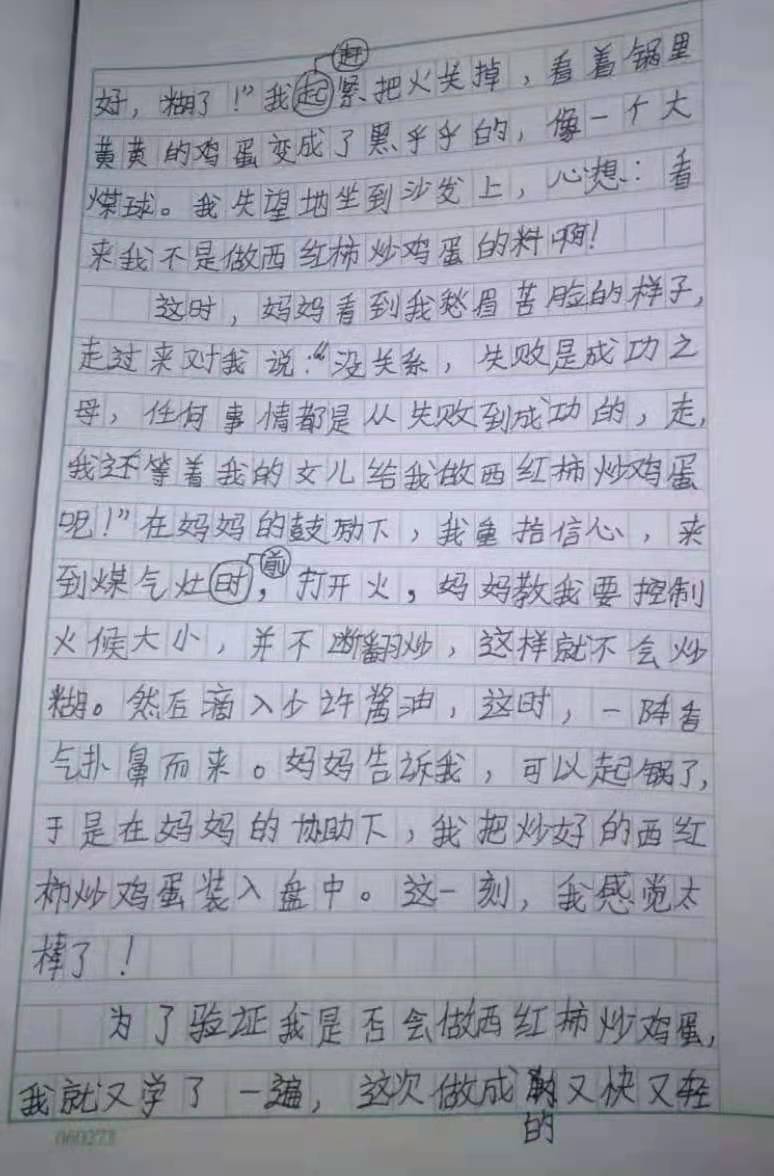 赶
好，糊了！”我起紧把火关掉，看着锅里
黄黄的鸡蛋变成了黑乎乎的，像一个大
煤球。我失望地坐到沙发上，心想：看
来我不是做西红柿炒鸡蛋的料啊！
这时，妈妈看到我愁眉苦脸的样子，
走过来对我说：“没关系，失败是成功之
母，任何事情都是从失败到成功的，走，
我还等着我的女儿给我做西红柿炒鸡蛋
呢！”在妈妈的鼓励下，我重拾信心，来
到煤气灶时，前打开火，妈妈教我要控制
火候大小，并不断翻炒，这样就不会炒
糊。然后滴入少许酱油，这时，一阵香
气扑鼻而来。妈妈告诉我，可以起锅了，
于是在妈妈的协助下，我把炒好的西红
柿炒鸡蛋装入盘中。这一刻，我感觉太
棒了！
为了验证我是否会做西红柿炒鸡蛋，
我就又学了一遍，这次做成又快又轻
的
060273